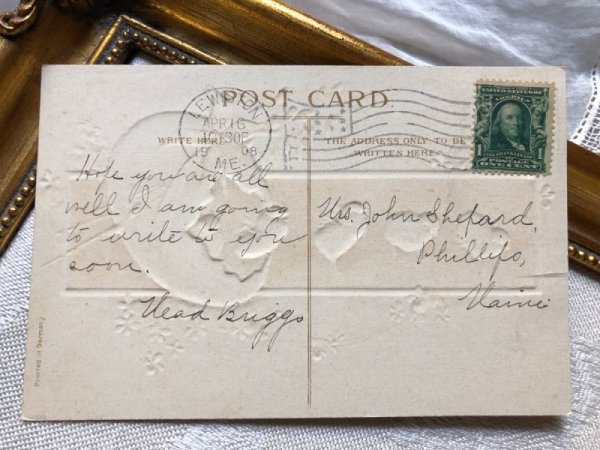 POST CARD
LEWISTON
APR 16
10 30P
1908
ME.
WRITE HERE
THE ADDRESS ONLY TO BE
WRITTEN HERE
UNITED STATES OF AMERICA
Hope you are all
well I am going
to write to you
soon.
Mead Briggs
Mrs. John Shepard,
Phillips,
Maine
Printed in Germany